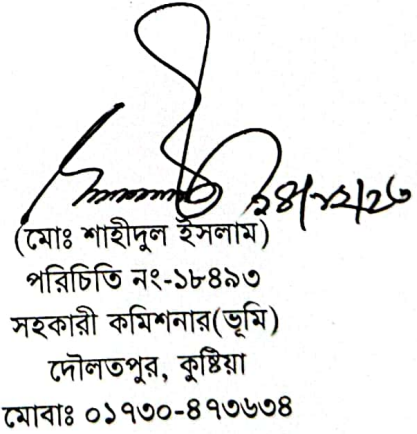 ২৪/১২/২৩
(মোঃ শাহীদুল ইসলাম)
পরিচিতি নং-১৮৪৯৩
সহকারী কমিশনার(ভূমি)
দৌলতপুর, কুষ্টিয়া
মোবাঃ ০১৭৩০-৪৭৩৬৩৪